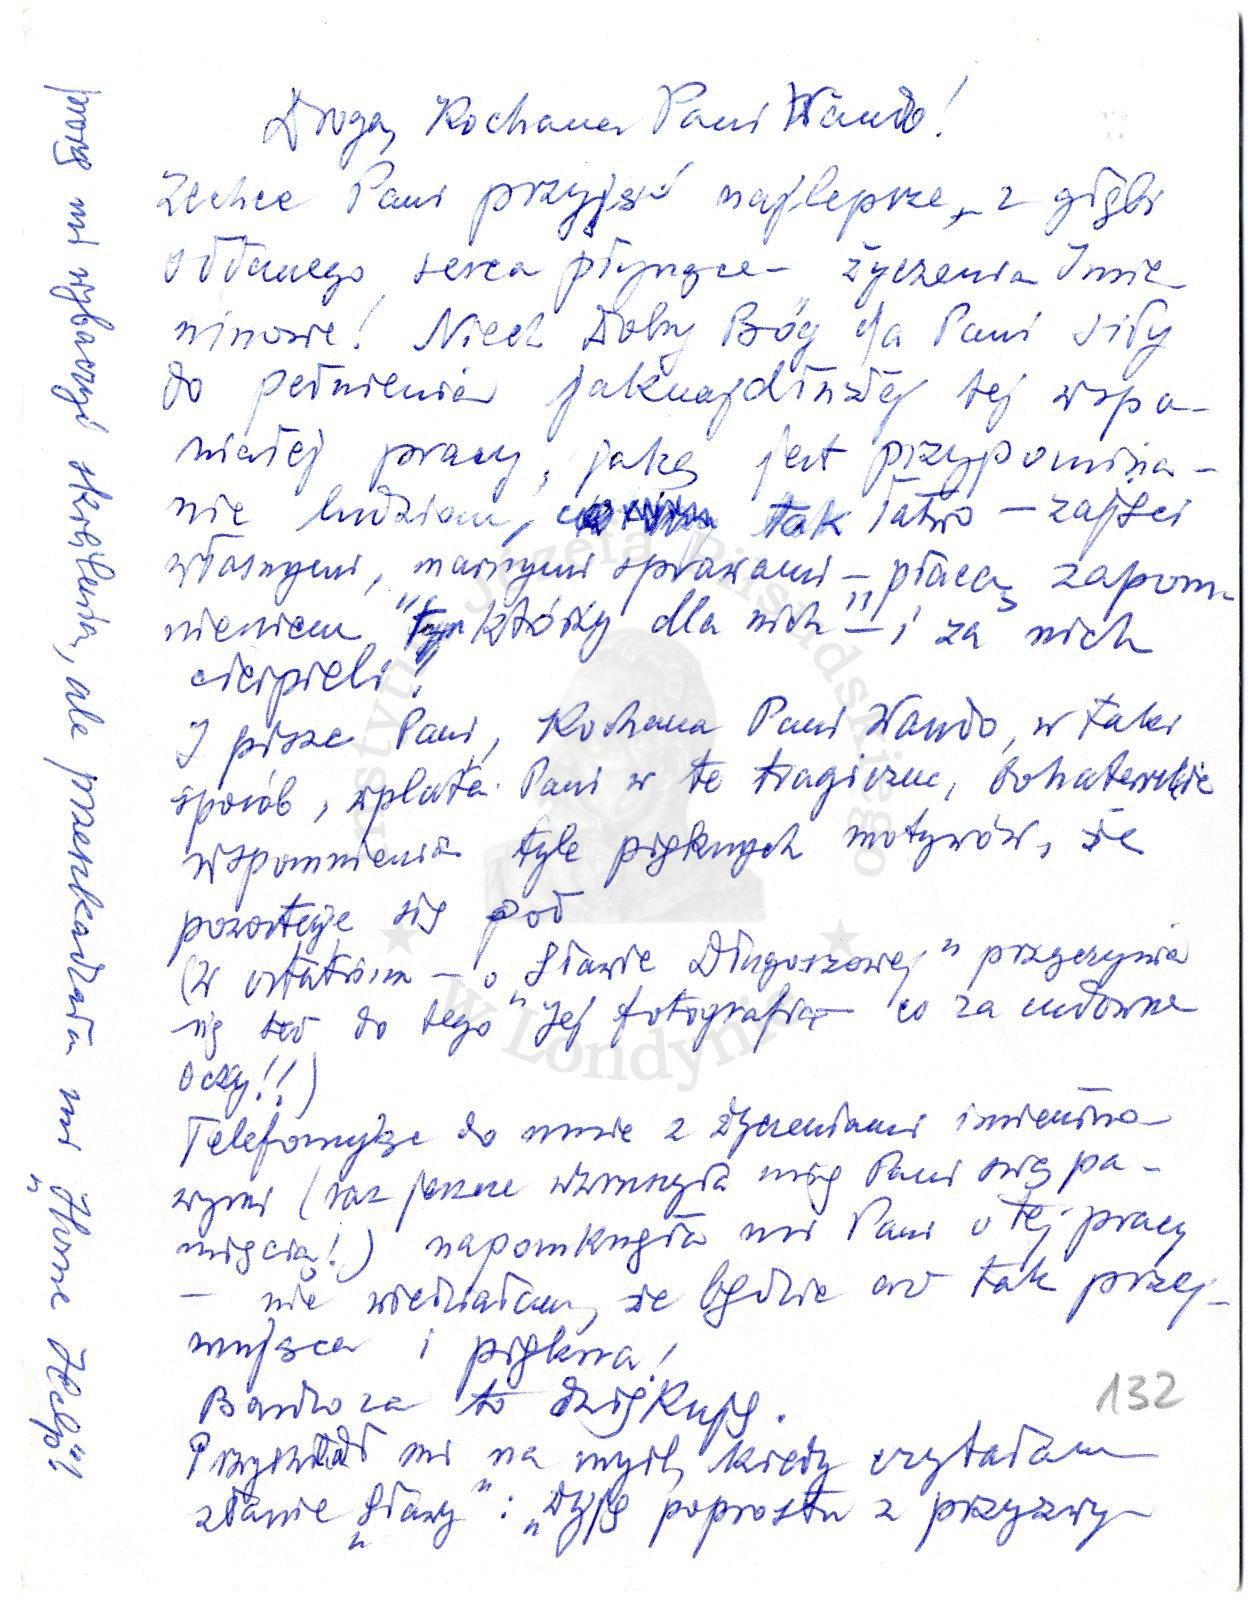 Droga, Kochana Pani Wando!
Zechce Pani przyjąć najlepsze, z głębi
oddanego serca płynące – życzenia Imie
ninowe! Niech Dobry Bóg da Pani siły
do pełnienia jaknajdłużej tej wspa-
niałej pracy, jaką jest przypomina-
nie ludziom, tak łatwo – zajęci
własnymi, marnymi sprawami – płacą zapom
nieniem "tym" którzy dla nich – i za nich
cierpieli!
I pisze Pani, Kochana Pani Wando, w taki
sposób, wplata Pani w te tragiczne, bohaterskie
wspomnienia tyle pięknych motywów, że
pozostaje się pod
(w ostatnim – o "Sławie Długoszowej" przyczynia
się też do tego Jej fotografia – co za cudowne
oczy!!)
Telefonując do mnie z życzeniami imienino-
wymi (raz jeszcze wzruszyła mię Pani swą pa-
mięcią!) napomknęła mi Pani o tej pracy
– nie wiedziałam, że będzie aż tak przej-
mująca i piękna!
Bardzo za to dziękuję.
Przyszedł mi na myśl, kiedy czytałam
zdanie "Sławy": "Żyję poprostu z przyzwy-
132
proszę mi wybaczyć skreślenia, ale przeszkadzała mi
"Home Help"!
Instytut Józefa Piłsudskiego
w Londynie